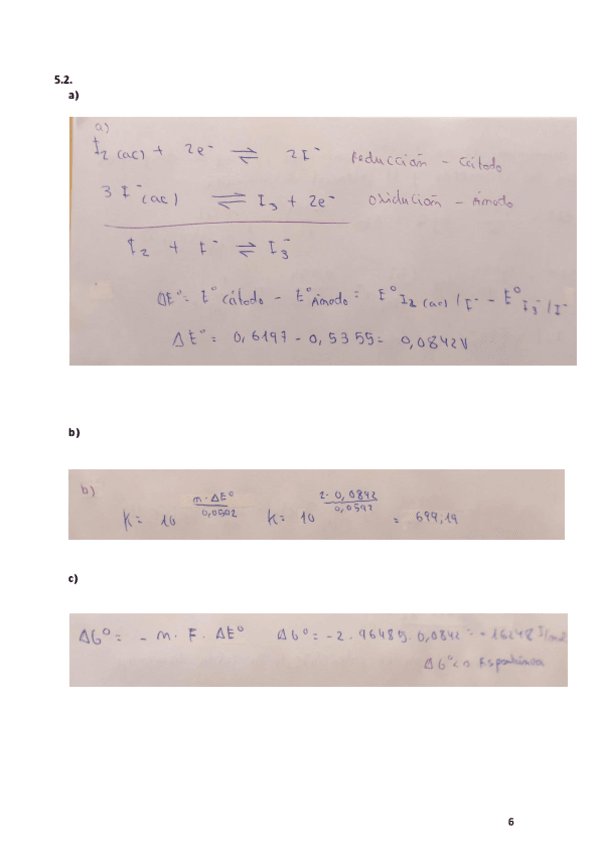 5.2.
a)
a)
I₂ (ac) + 2e⁻ ⇌ 2I⁻ Reducción - Cátodo
3 I⁻ (ac) ⇌ I₃ + 2e⁻ oxidución - Ánodo
I₂ + I⁻ ⇌ I₃⁻
ΔE° = E° cátodo - E° Ánodo = E° I₂ (ac) / I⁻ - E° I₃⁻ / I⁻
ΔE° = 0,6197 - 0,5355 = 0,0842 V
b)
b)
K = 10^(n·ΔE°/0,0592) K = 10^(2·0,0842/0,0592) = 699,19
c)
ΔG° = - n · F · ΔE° ΔG° = -2 . 96485 . 0,0842 = - 16248 J/mol
ΔG° < 0 Espontánea
6